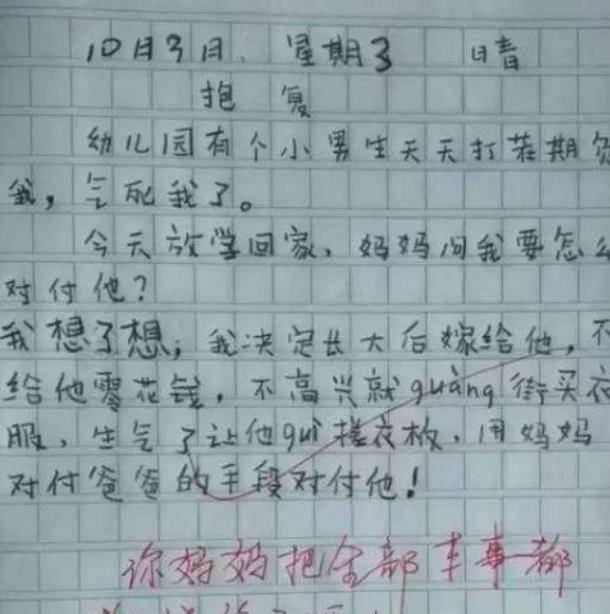 10月3日、星期3 日晴
抱复
幼儿园有个小男生天天打茬期负
我，气死我了。
今天放学回家、妈妈问我要怎么
对付他？
我想了想，我决定长大后嫁给他，不
给他零花钱，不高兴就guàng街买衣
服、生气了让他guì搓衣板、用妈妈
对付爸爸的手段对付他！
你妈妈把全部本事都